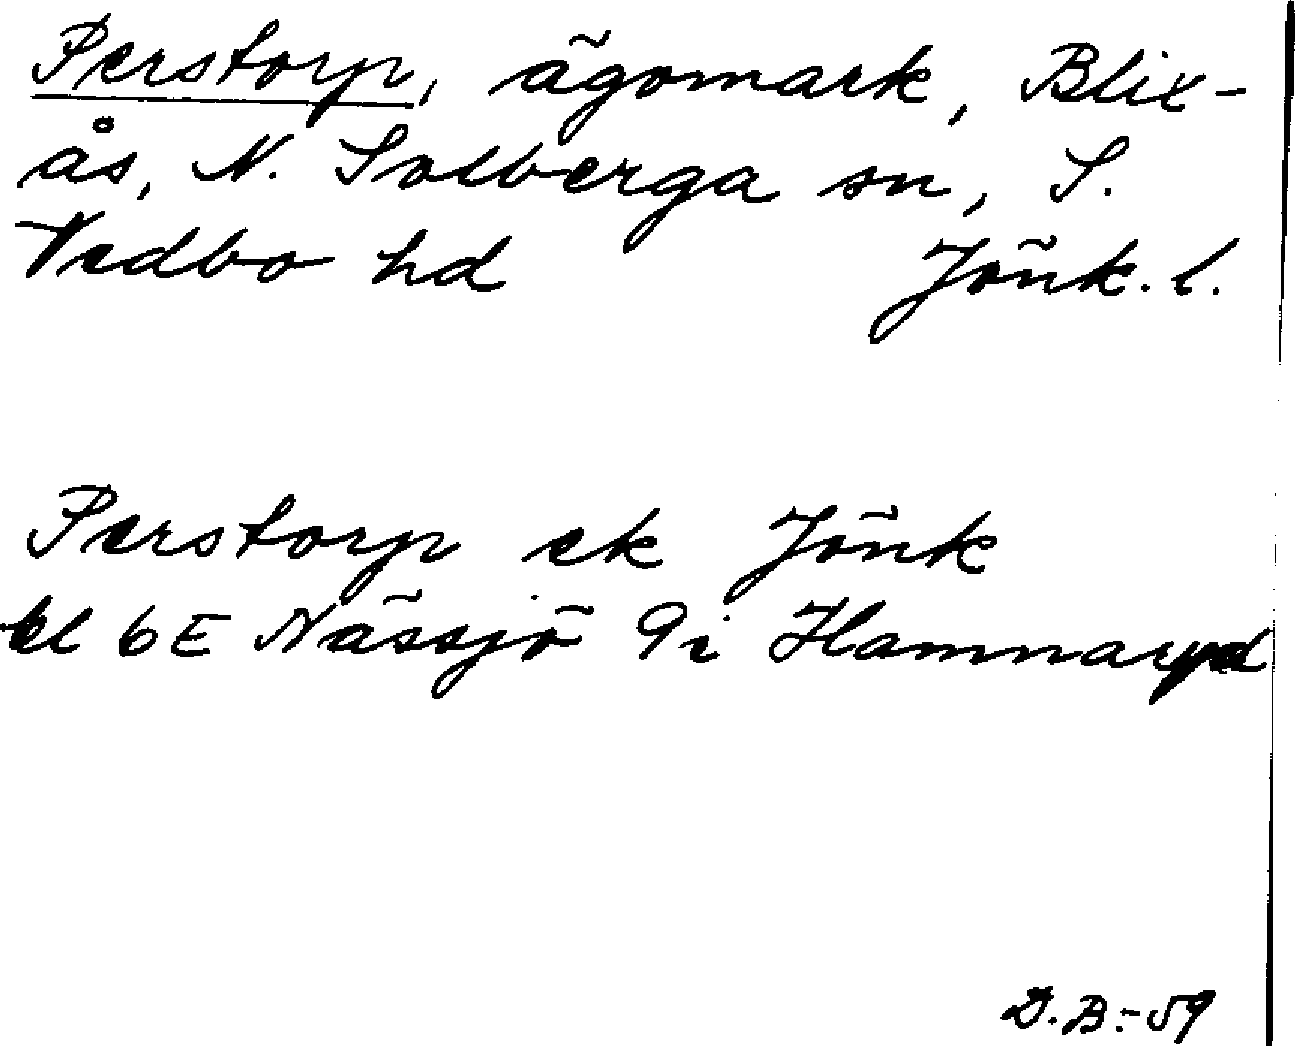 Perstorp, ägomark, Blix-
ås, N. Solberga sn, S.
Vedbo hd Jönk. l.
Perstorp ek Jönk
bl 6E Nässjö 9i Hamnaryd
D.B.-59